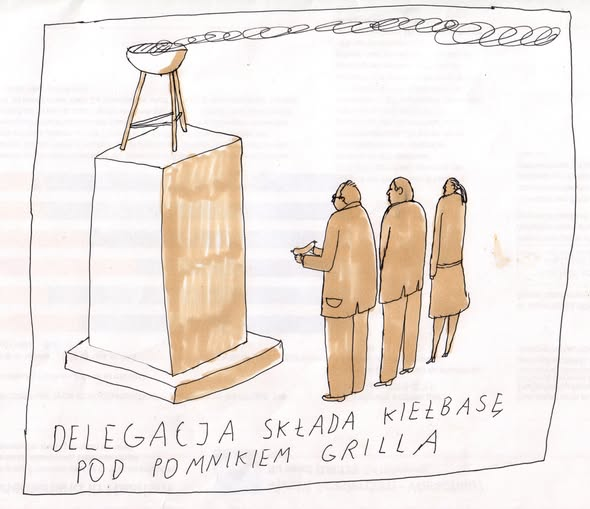 DELEGACJA SKŁADA KIEŁBASĘ
POD POMNIKIEM GRILLA